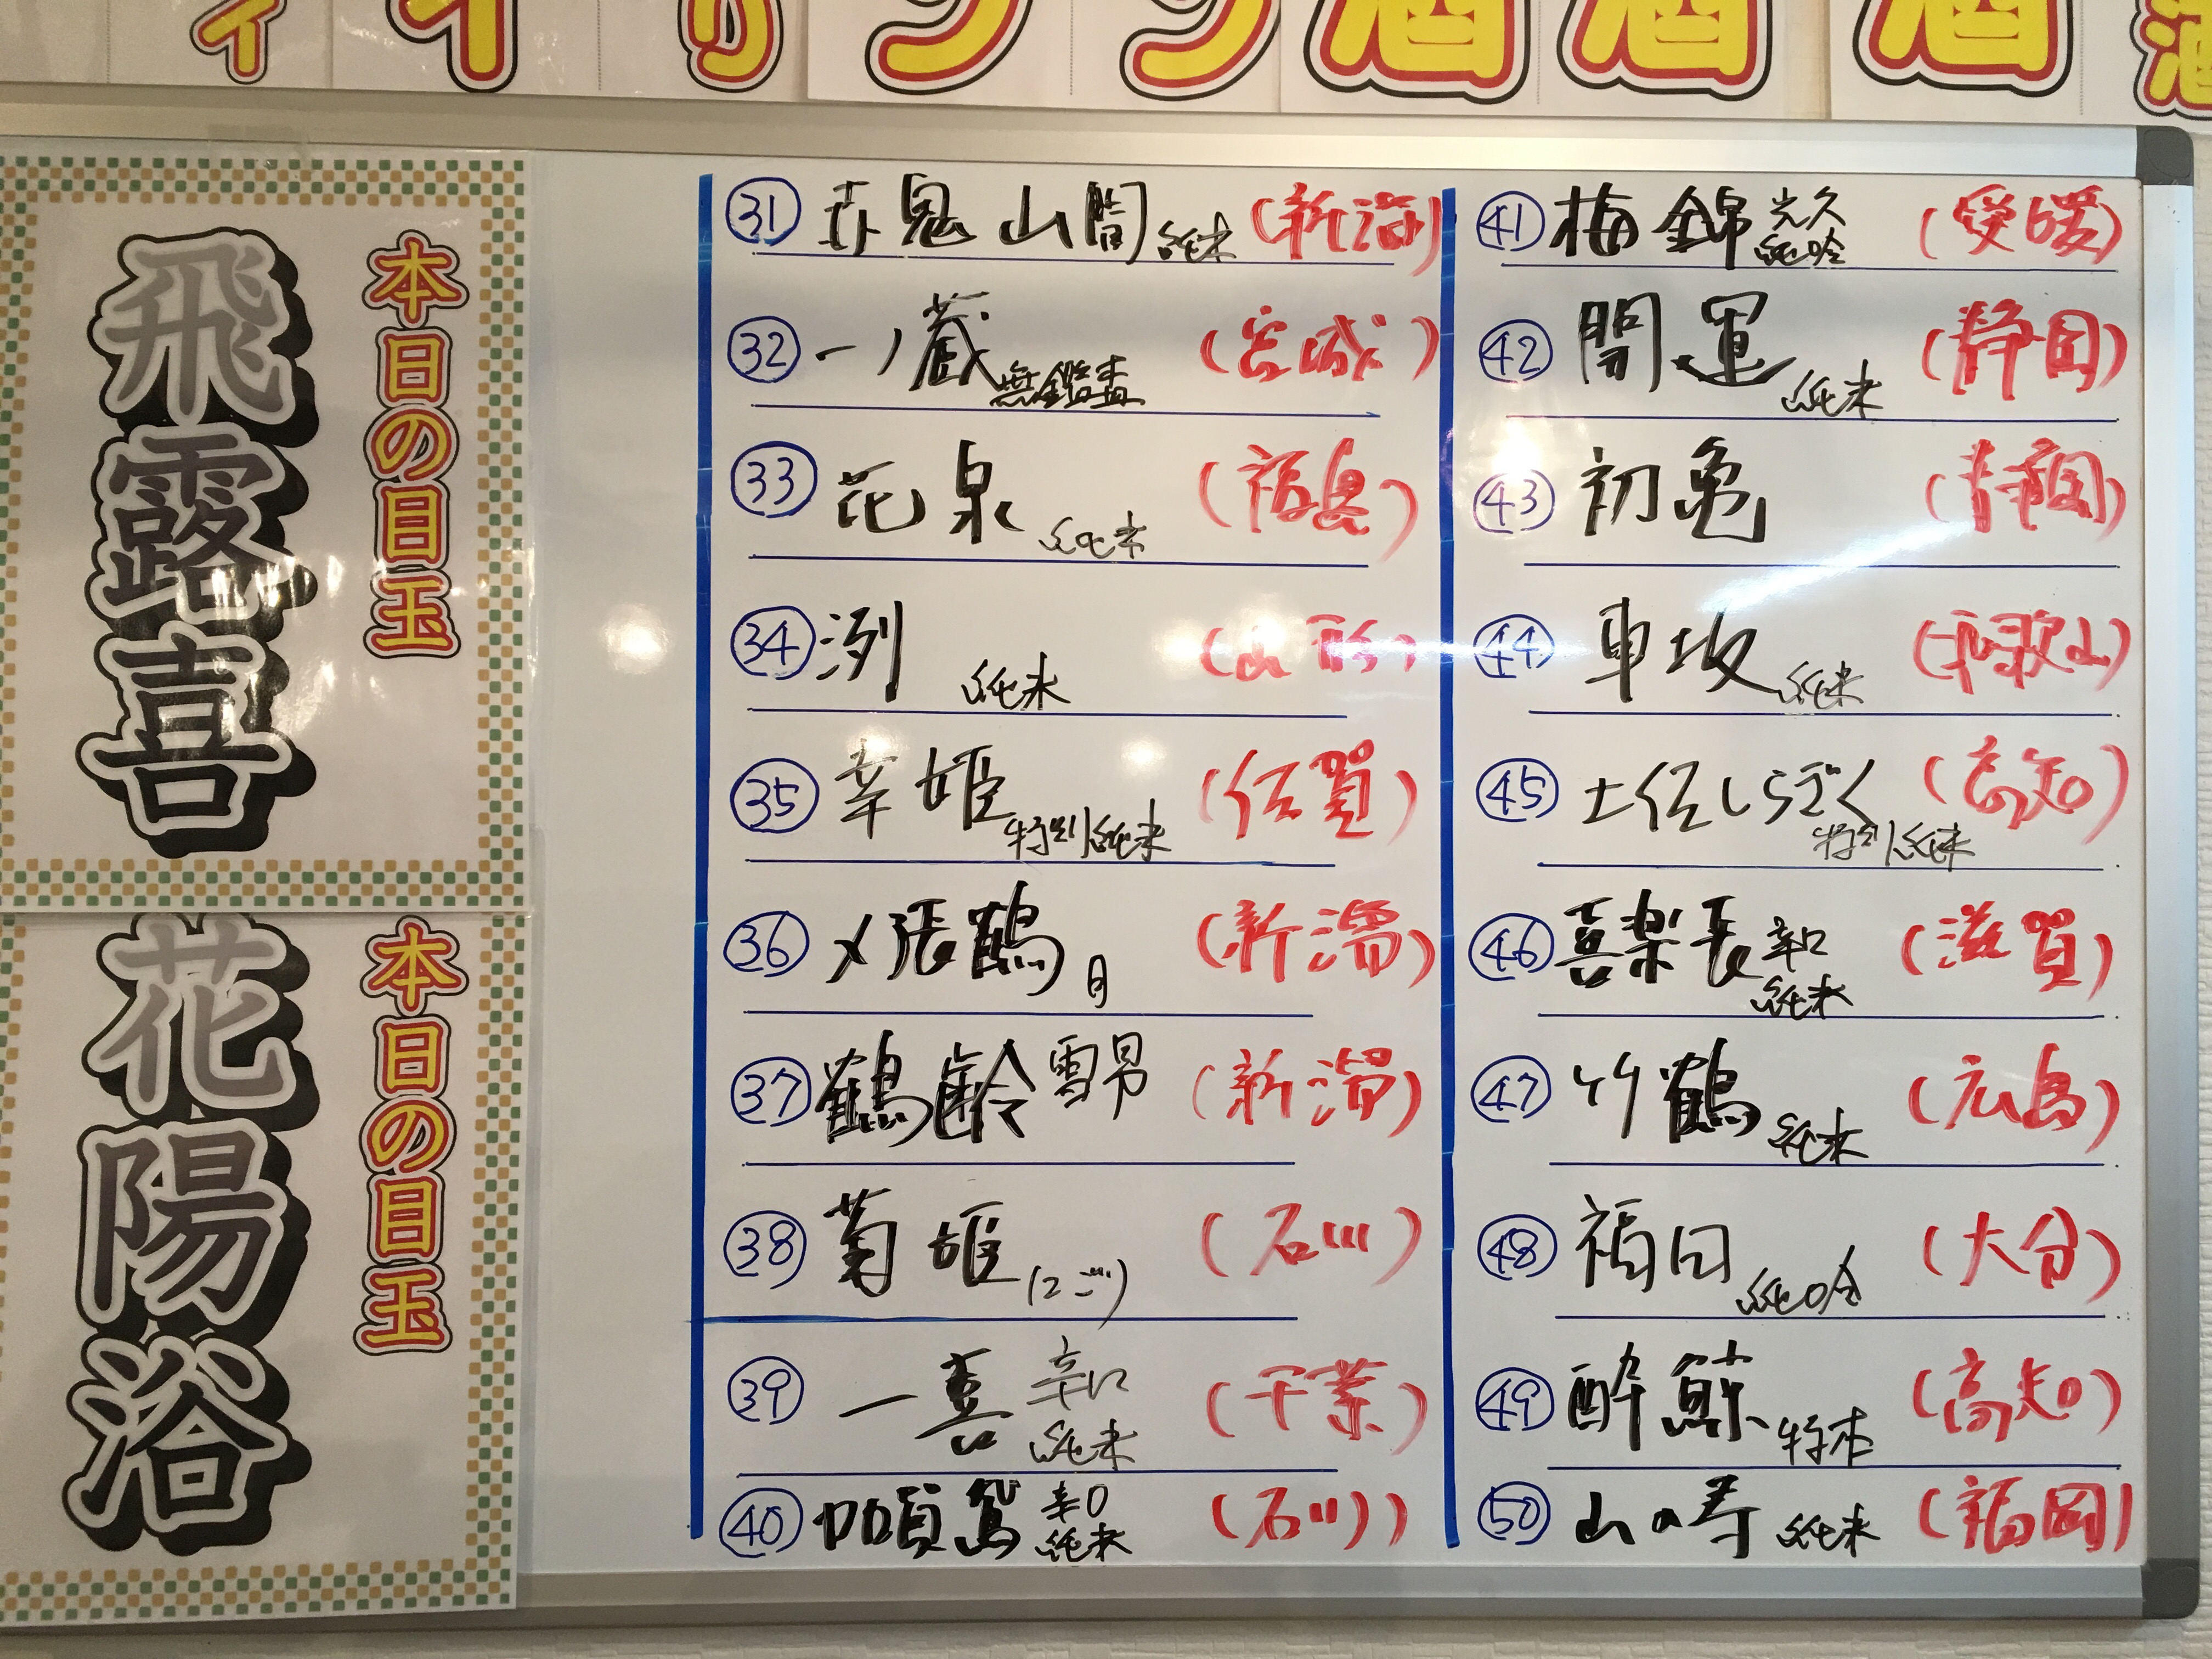 本日の目玉
飛露喜
本日の目玉
花陽浴
㉛ 鬼山間 純米 (新潟)
㉜ 一ノ蔵 無鑑査 (宮城)
㉝ 花泉 純米 (福島)
㉞ 洌 純米 (山形)
㉟ 幸姫 特別純米 (佐賀)
㊱ 〆張鶴 月 (新潟)
㊲ 鶴齢 雪男 (新潟)
㊳ 菊姫 にごり (石川)
㊴ 一喜 辛口 純米 (千葉)
㊵ 加賀鳶 辛口 純米 (石川)
㊶ 梅錦 純吟 (愛媛)
㊷ 開運 純米 (静岡)
㊸ 初亀 (静岡)
㊹ 車坂 純米 (和歌山)
㊺ 土佐しらぎく 特別純米 (高知)
㊻ 喜楽長 辛口 純米 (滋賀)
㊼ 竹鶴 純米 (広島)
㊽ 福田 純吟 (大分)
㊾ 酔鯨 特本 (高知)
㊿ 山の寿 純米 (福岡)